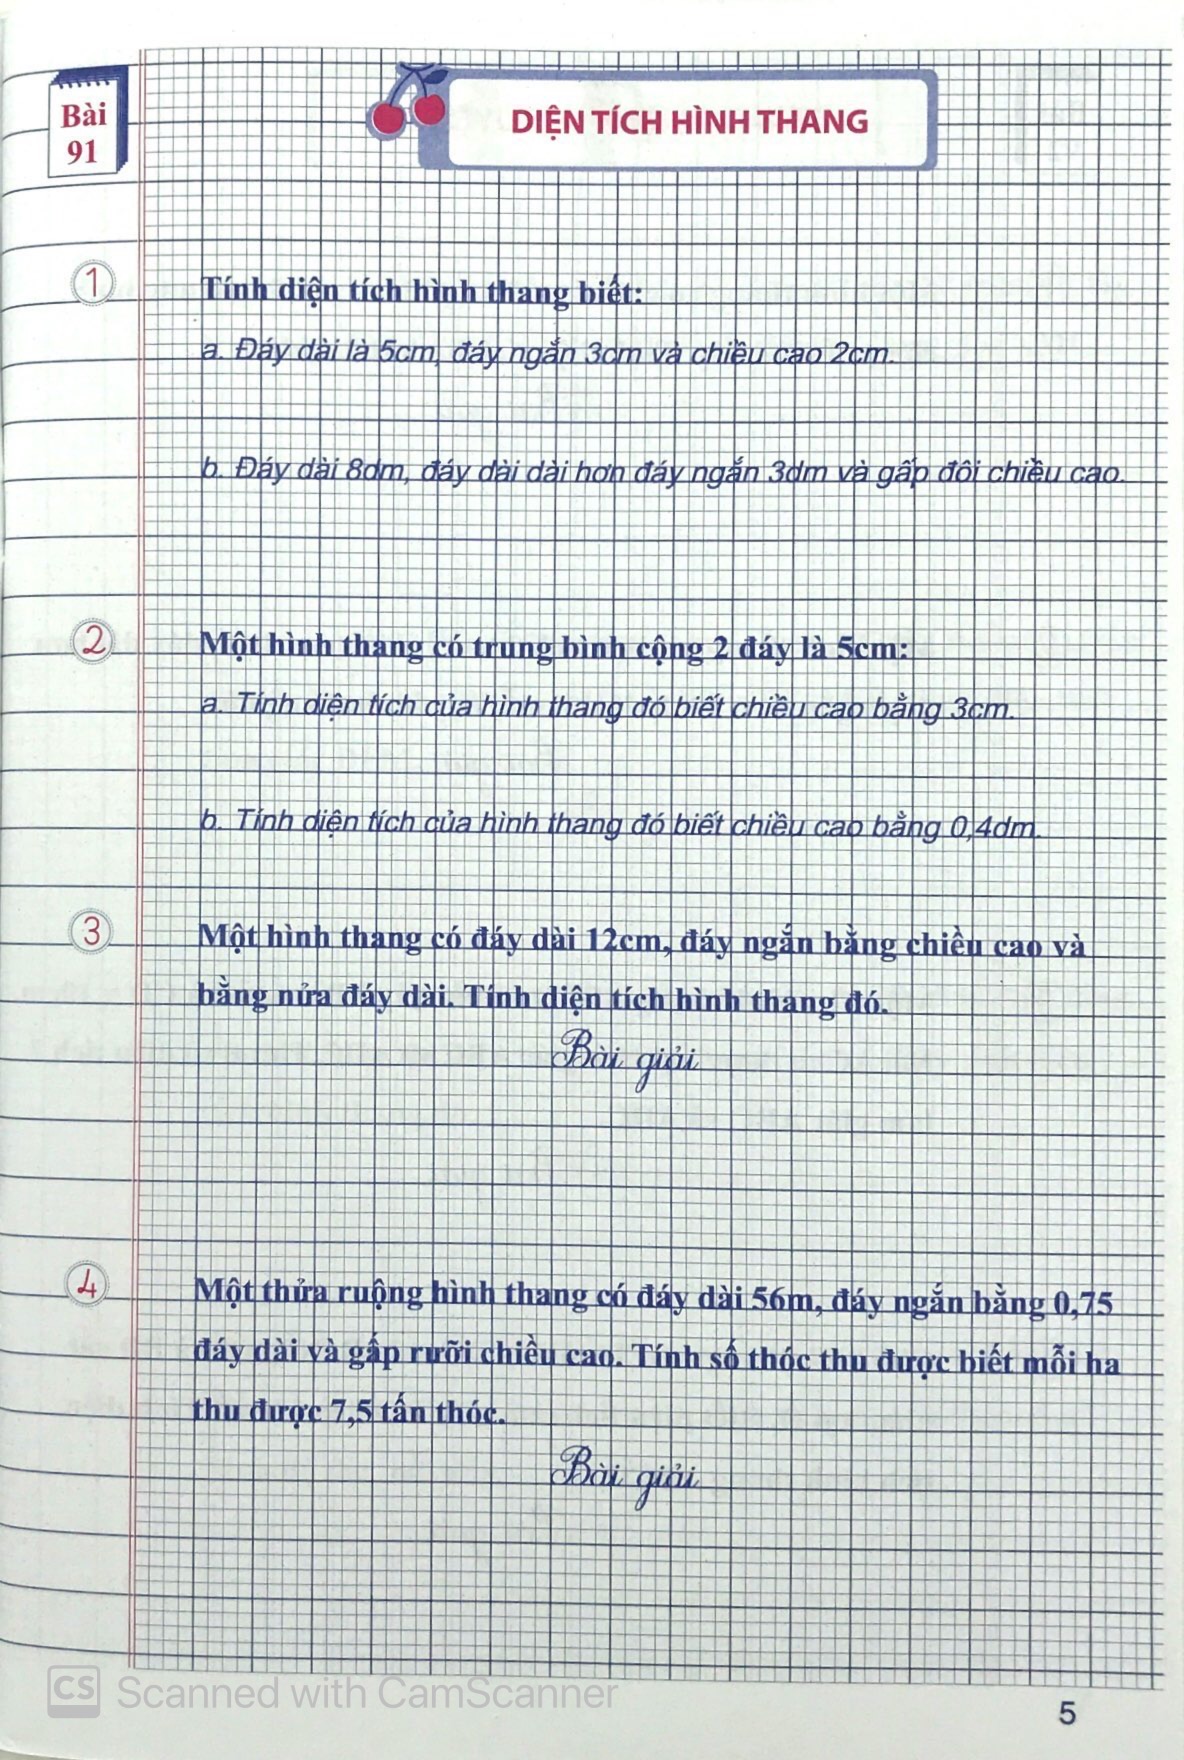 Bài
91
DIỆN TÍCH HÌNH THANG
1
Tính diện tích hình thang biết:
a. Đáy dài là 5cm, đáy ngắn 3cm và chiều cao 2cm.
b. Đáy dài 8dm, đáy dài dài hơn đáy ngắn 3dm và gấp đôi chiều cao.
2
Một hình thang có trung bình cộng 2 đáy là 5cm:
a. Tính diện tích của hình thang đó biết chiều cao bằng 3cm.
b. Tính diện tích của hình thang đó biết chiều cao bằng 0,4dm.
3
Một hình thang có đáy dài 12cm, đáy ngắn bằng chiều cao và
bằng nửa đáy dài. Tính diện tích hình thang đó.
Bài giải
4
Một thửa ruộng hình thang có đáy dài 56m, đáy ngắn bằng 0,75
đáy dài và gấp rưỡi chiều cao. Tính số thóc thu được biết mỗi ha
thu được 7,5 tấn thóc.
Bài giải
CS Scanned with CamScanner
5